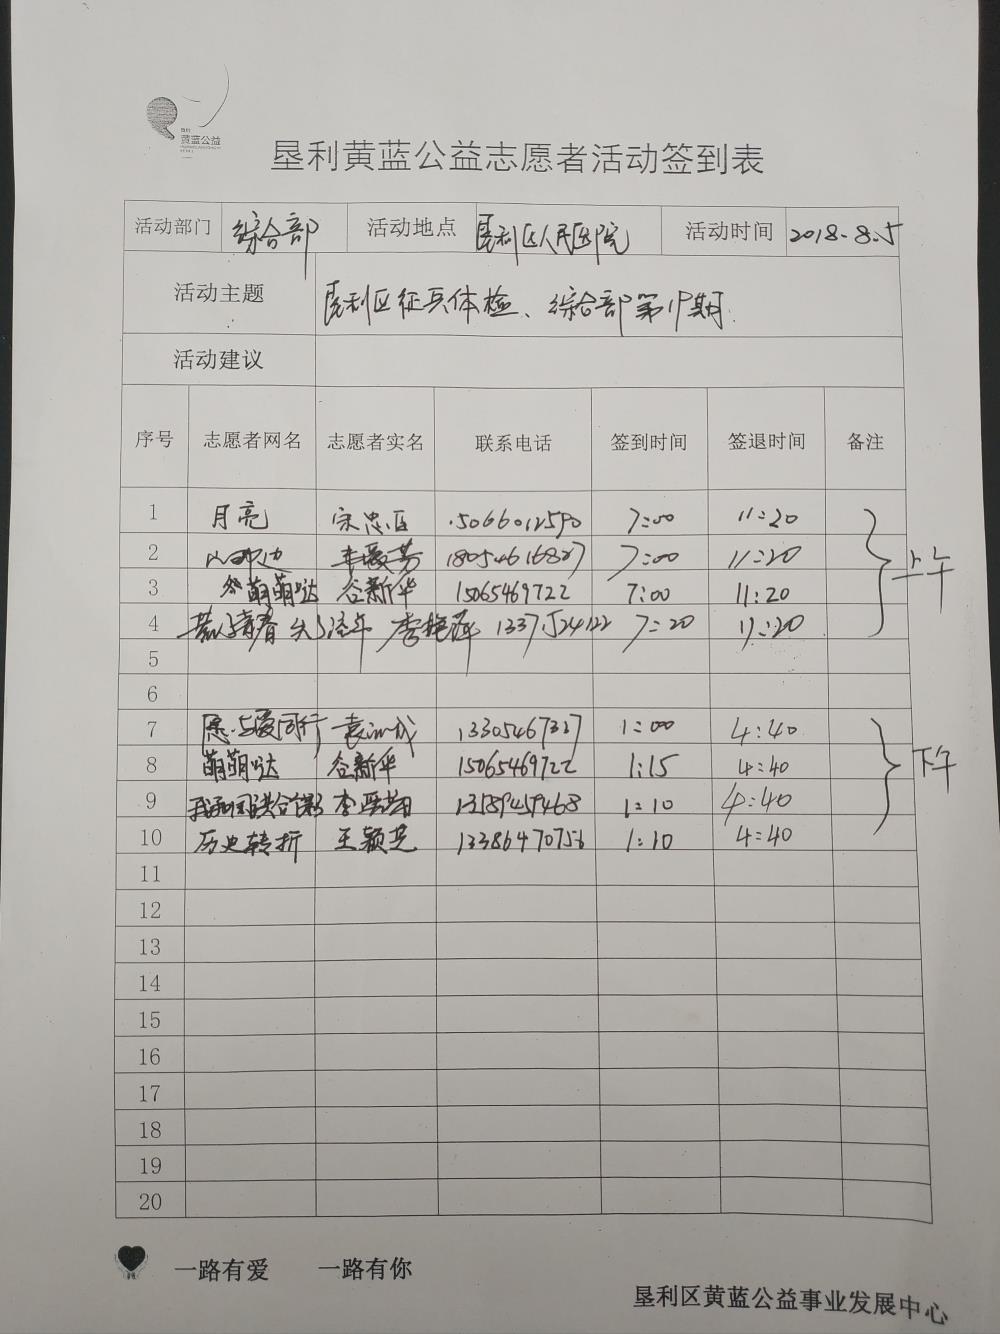 黄蓝公益
垦利黄蓝公益志愿者活动签到表
活动部门 综合部 活动地点 垦利区人民医院 活动时间 2018.8.5
活动主题 垦利区征兵体检、综合部第19期
活动建议
序号 志愿者网名 志愿者实名 联系电话 签到时间 签退时间 备注
1 月亮 15066012590 7:00 11:20
2 7:00 11:20
3 萌萌哒 谷新华 15065469722 7:00 11:20 上午
4 7:20 11:20
5
6
7 愿与爱同行 1:00 4:40
8 萌萌哒 谷新华 15065469722 1:15 4:40 下午
9 13189459468 1:10 4:40
10 历史转折 王颖芝 13386470756 1:10 4:40
11
12
13
14
15
16
17
18
19
20
一路有爱 一路有你
垦利区黄蓝公益事业发展中心